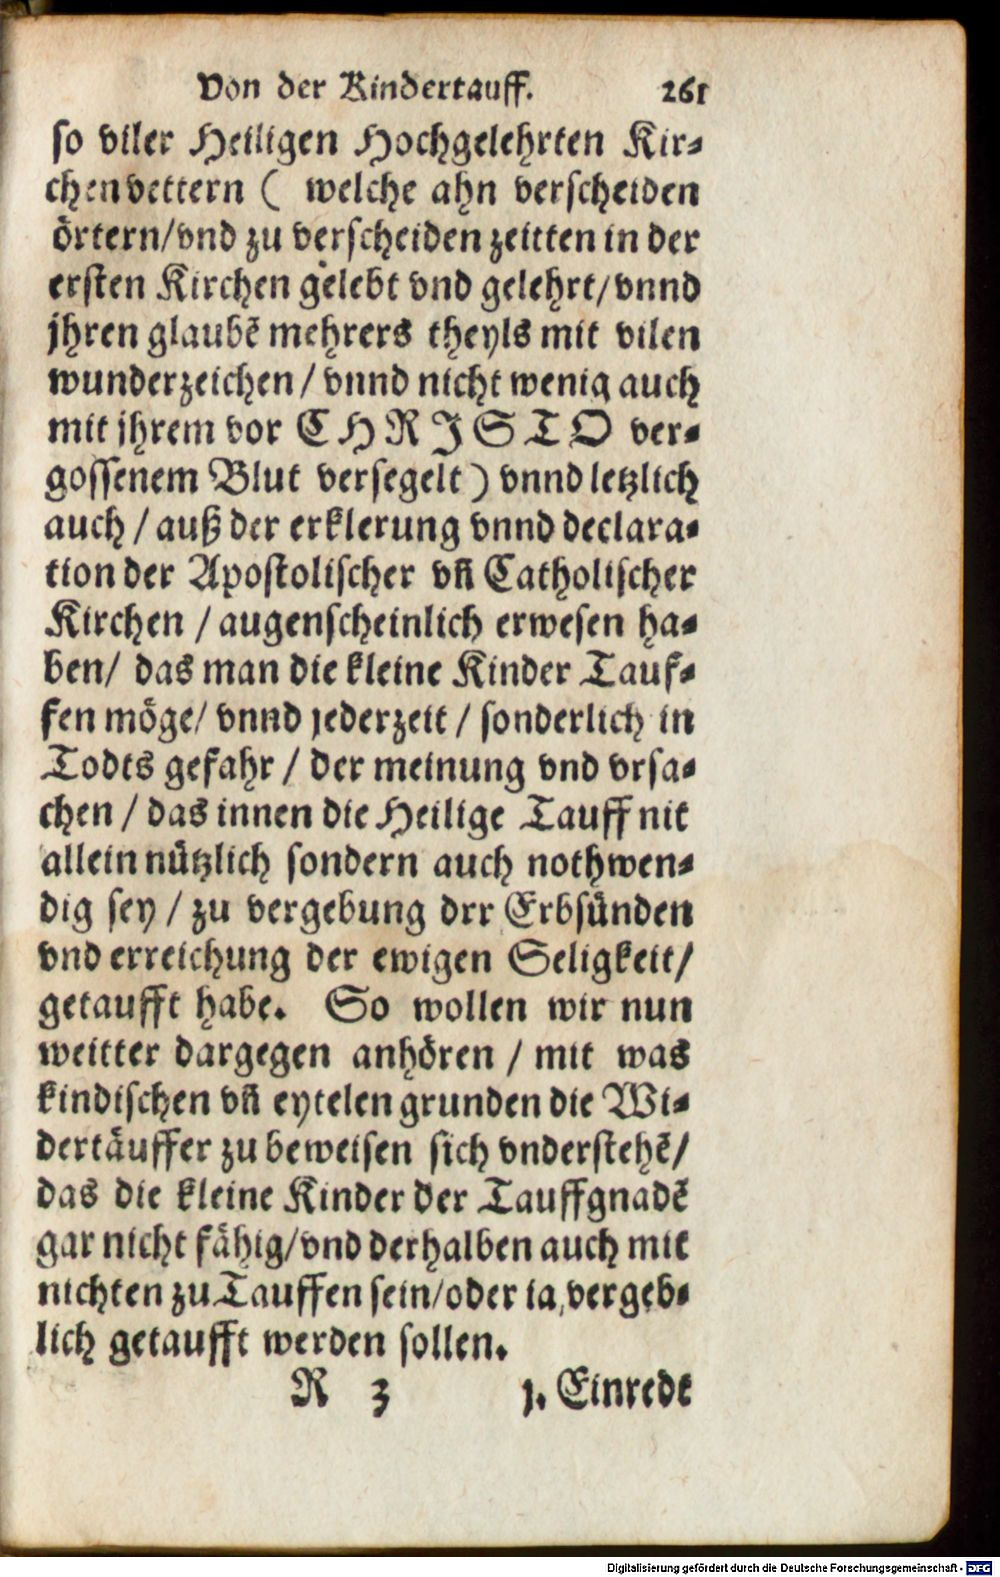 Von der Kindertauff. 261
so viler Heiligen Hochgelehrten Kir-
chenvettern ( welche ahn verscheiden
örtern/vnd zu verscheiden zeitten in der
ersten Kirchen gelebt vnd gelehrt/vnnd
jhren glaubẽ mehrers theyls mit vilen
wunderzeichen / vnnd nicht wenig auch
mit jhrem vor CHRISTO ver-
gossenem Blut versegelt ) vnnd letzlich
auch / auß der erklerung vnnd declara-
tion der Apostolischer vñ Catholischer
Kirchen / augenscheinlich erwesen ha-
ben/ das man die kleine Kinder Tauf-
fen möge/ vnnd jederzeit / sonderlich in
Todts gefahr / der meinung vnd vrsa-
chen / das innen die Heilige Tauff nit
allein nützlich sondern auch nothwen-
dig sey / zu vergebung drr Erbsünden
vnd erreichung der ewigen Seligkeit/
getaufft habe. So wollen wir nun
weitter dargegen anhören / mit was
kindischen vñ eytelen grunden die Wi-
dertäuffer zu beweisen sich vnderstehẽ/
das die kleine Kinder der Tauffgnadẽ
gar nicht fähig/vnd derhalben auch mit
nichten zu Tauffen sein/oder ia, vergeb-
lich getaufft werden sollen.
R 3 1. Einredt
Digitalisierung gefördert durch die Deutsche Forschungsgemeinschaft - DFG